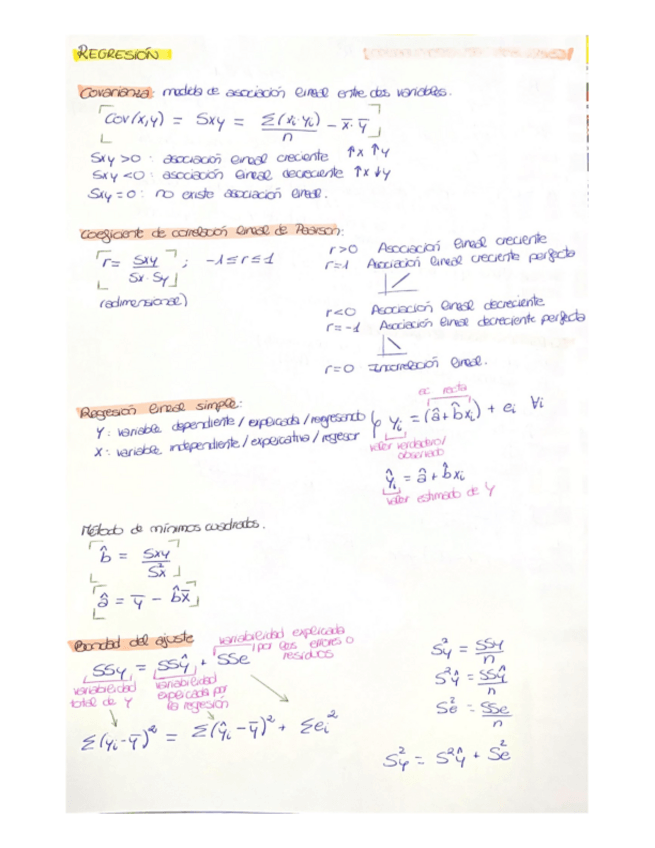 REGRESIÓN
Covarianza: medida de asociación lineal entre dos variables.
Cov(x,y) = Sxy = Σ(xi·yi)/n − x̄·ȳ
Sxy >0 : asociación lineal creciente ↑x ↑y
Sxy <0 : asociación lineal decreciente ↑x ↓y
Sxy = 0 : no existe asociación lineal.
Coeficiente de correlación lineal de Pearson:
r = Sxy/(Sx·Sy) ; −1 ≤ r ≤ 1
(adimensional)
r>0 Asociación lineal creciente
r=1 Asociación lineal creciente perfecta
r<0 Asociación lineal decreciente
r=-1 Asociación lineal decreciente perfecta
r=0 Incorrelación lineal.
Regresión lineal simple:
Y: variable dependiente/explicada/regresando
X: variable independiente/explicativa/regresor
ec recta
yi = (â+b̂xi) + ei ∀i
valor verdadero/
observado
ŷi = â + b̂xi
valor estimado de Y
Método de mínimos cuadrados.
b̂ = Sxy/S²x
â = ȳ − b̂x̄
Bondad del ajuste
variabilidad explicada
por los errores o
residuos
SSy = SSŷ + SSe
variabilidad
total de Y
variabilidad
explicada por
la regresión
Σ(yi-ȳ)² = Σ(ŷi-ȳ)² + Σei²
S²y = SSy/n
S²ŷ = SSŷ/n
S²e = SSe/n
S²y = S²ŷ + S²e